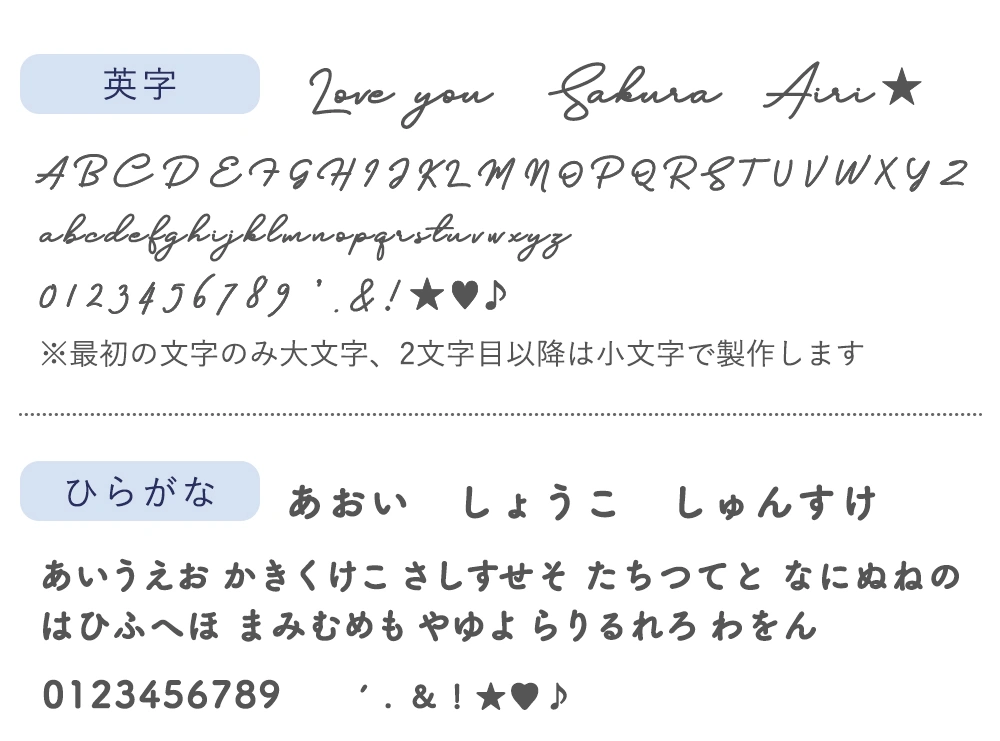 英字 Love you Sakura Airi★
ABCDEFGHIJKLMNOPQRSTUVWXYZ
abcdefghijklmnopqrstuvwxyz
0123456789 '.&!★♥♪
※最初の文字のみ大文字、2文字目以降は小文字で製作します
ひらがな あおい しょうこ しゅんすけ
あいうえお かきくけこ さしすせそ たちつてと なにぬねの
はひふへほ まみむめも やゆよ らりるれろ わをん
0123456789 ′.&!★♥♪